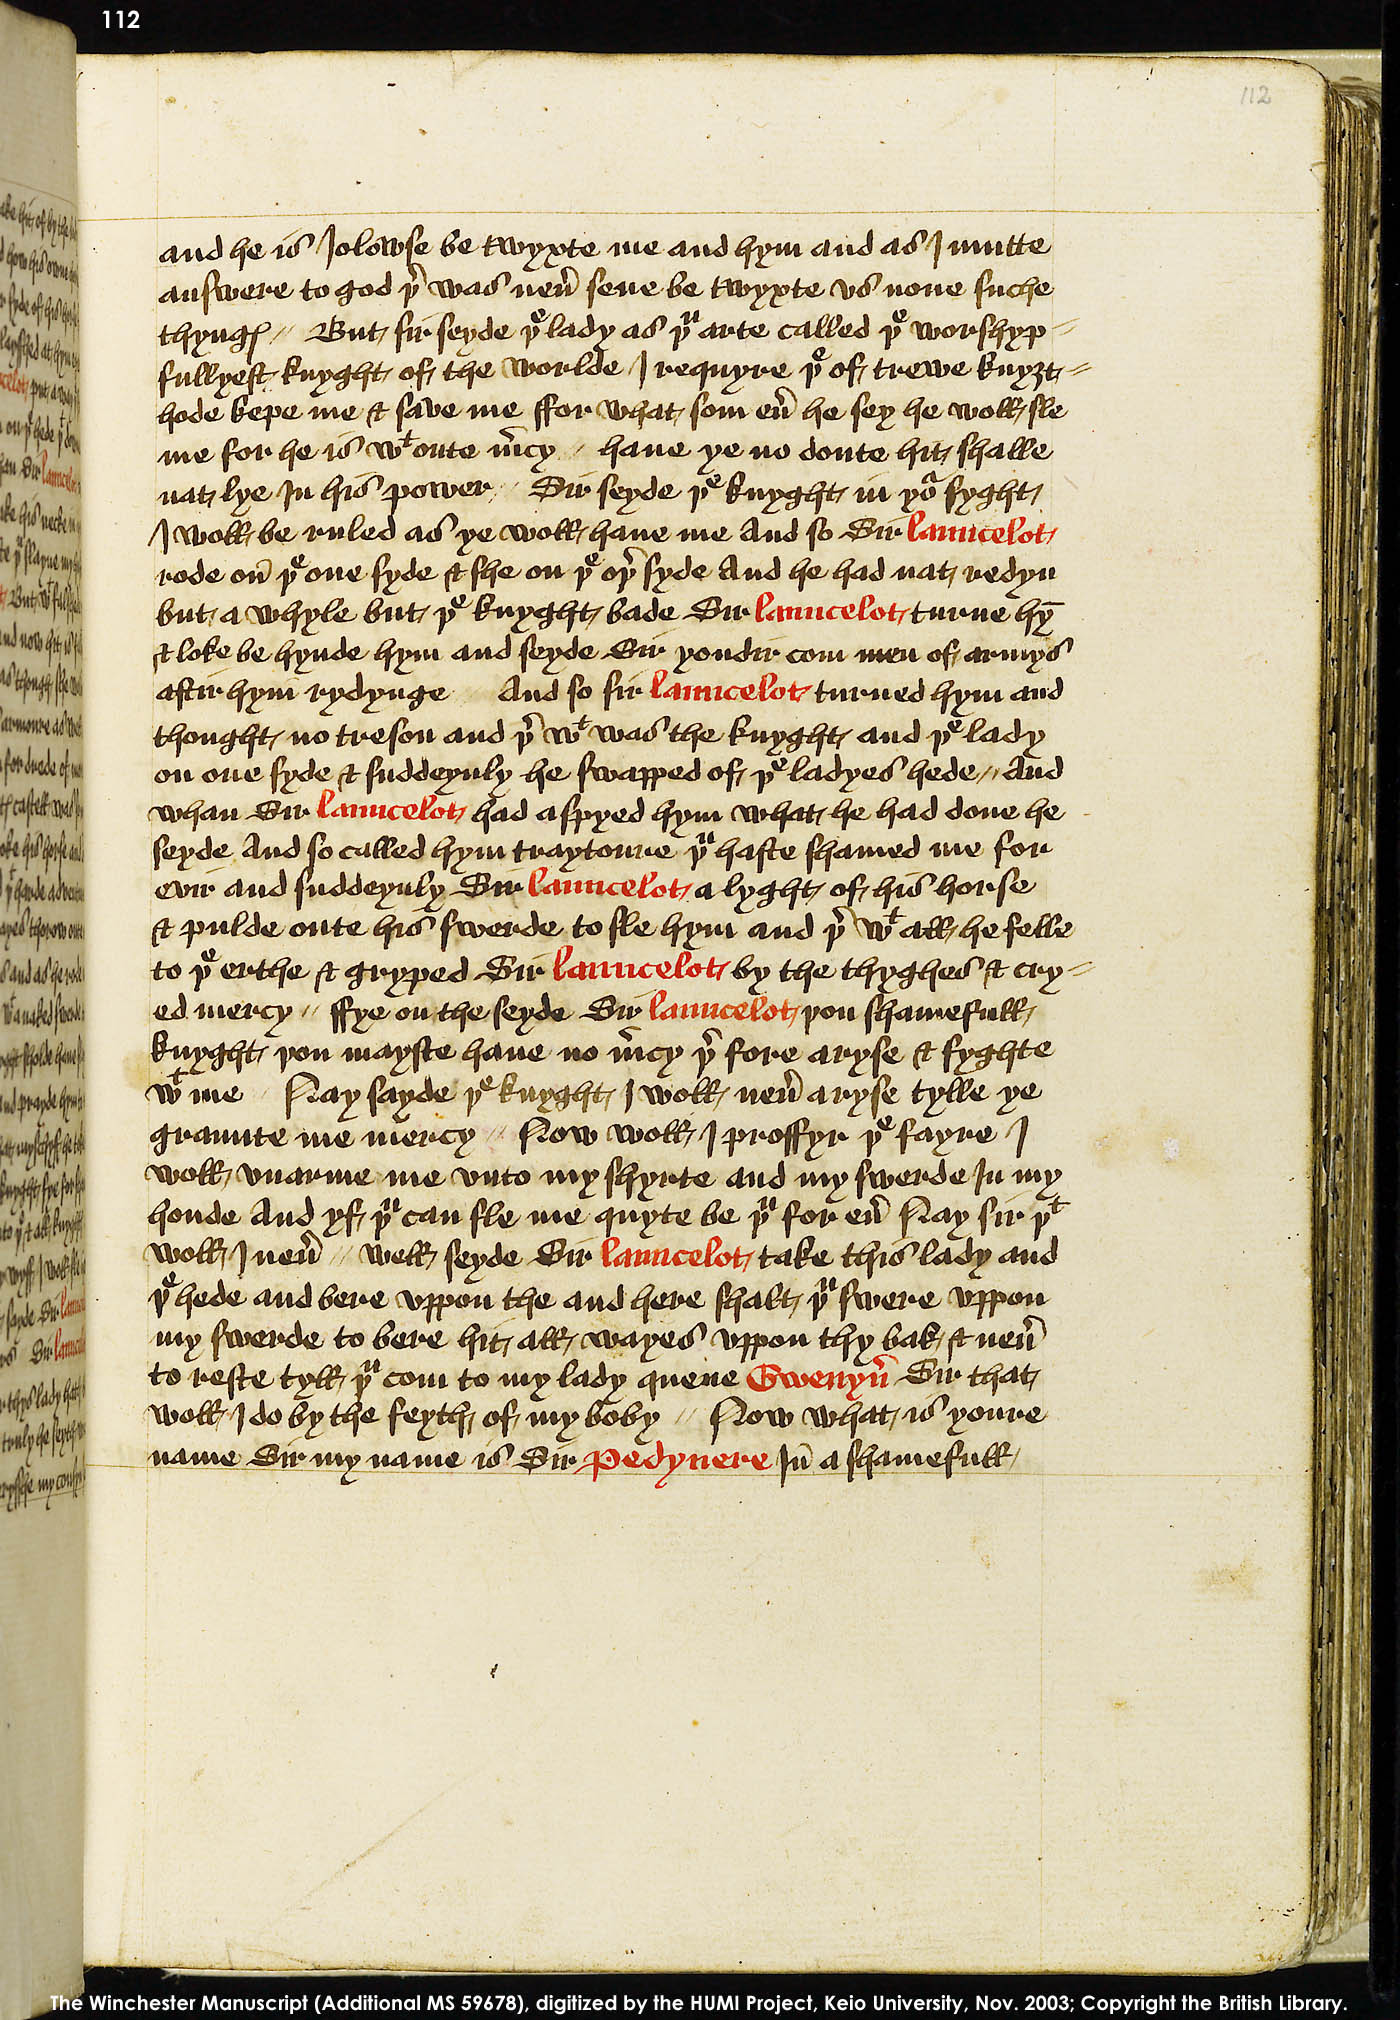 112
112
and he is Jolowse be twyxte me and hym and as J mutte
answere to god þʳ was neuͬ sene be twyxte vs none suche
thyngꝭ // But sir seyde þᵉ lady as þᵘ arte called þᵉ worshyp=
fullyest knyght of the worlde J requyre þᵉ of trewe knyȝt=
hode kepe me & save me ffor what som euͬ he sey he woll sle
me for he is wᵗ oute mͬcy // haue ye no doute hit shalle
nat lye Jn his power // Sir seyde þᵉ knyght in yoʳ syght
J woll be ruled as ye woll haue me And so Sir launcelot
rode on̄ þᵉ one syde & she on þᵉ oþʳ syde And he had nat redyn
but a whyle but þᵉ knyght bade Sir launcelot turne hȳ
& loke be hynde hym and seyde Sir yondir com men of armys
aftir hym rydynge And so sir launcelot turned hym and
thought no treson and þʳ wᵗ was the knyght and þᵉ lady
on one syde & suddeynly he swapped of þᵉ ladyes hede // And
whan Sir launcelot had aspyed hym what he had done he
seyde And so called hym traytoure þᵘ haste shamed me for
evir and suddeynly Sir launcelot a lyght of his horse
& pulde oute his swerde to sle hym and þʳ wᵗ all he felle
to þᵉ erthe & gryped Sir launcelot by the thyghes & cry=
ed mercy // ffye on the seyde Sir launcelot þou shamefull
knyght þou mayste haue no mͬcy þʳ fore aryse & fyghte
wᵗ me // Nay sayde þᵉ knyght J woll neuͬ aryse tylle ye
graunte me mercy // Now woll J proffyr þᵉ fayre J
woll vnarme me vnto my shyrte and my swerde Jn my
honde And yf þᵘ can sle me quyte be þᵘ for euͬ Nay sir þᵗ
woll J neuͬ // well seyde Sir launcelot take this lady and
þᵉ hede and bere vppon the and here shalt þᵘ swere vppon
my swerde to bere hit all wayes vppon thy bak & neuͬ
to reste tyll þᵘ com to my lady quene Gwenyuͬ Sir that
woll J do by the feyth of my boby // Now what is youre
name Sir my name is Sir Pedyuere Jn̄ a shamefull
The Winchester Manuscript (Additional MS 59678), digitized by the HUMI Project, Keio University, Nov. 2003; Copyright the British Library.